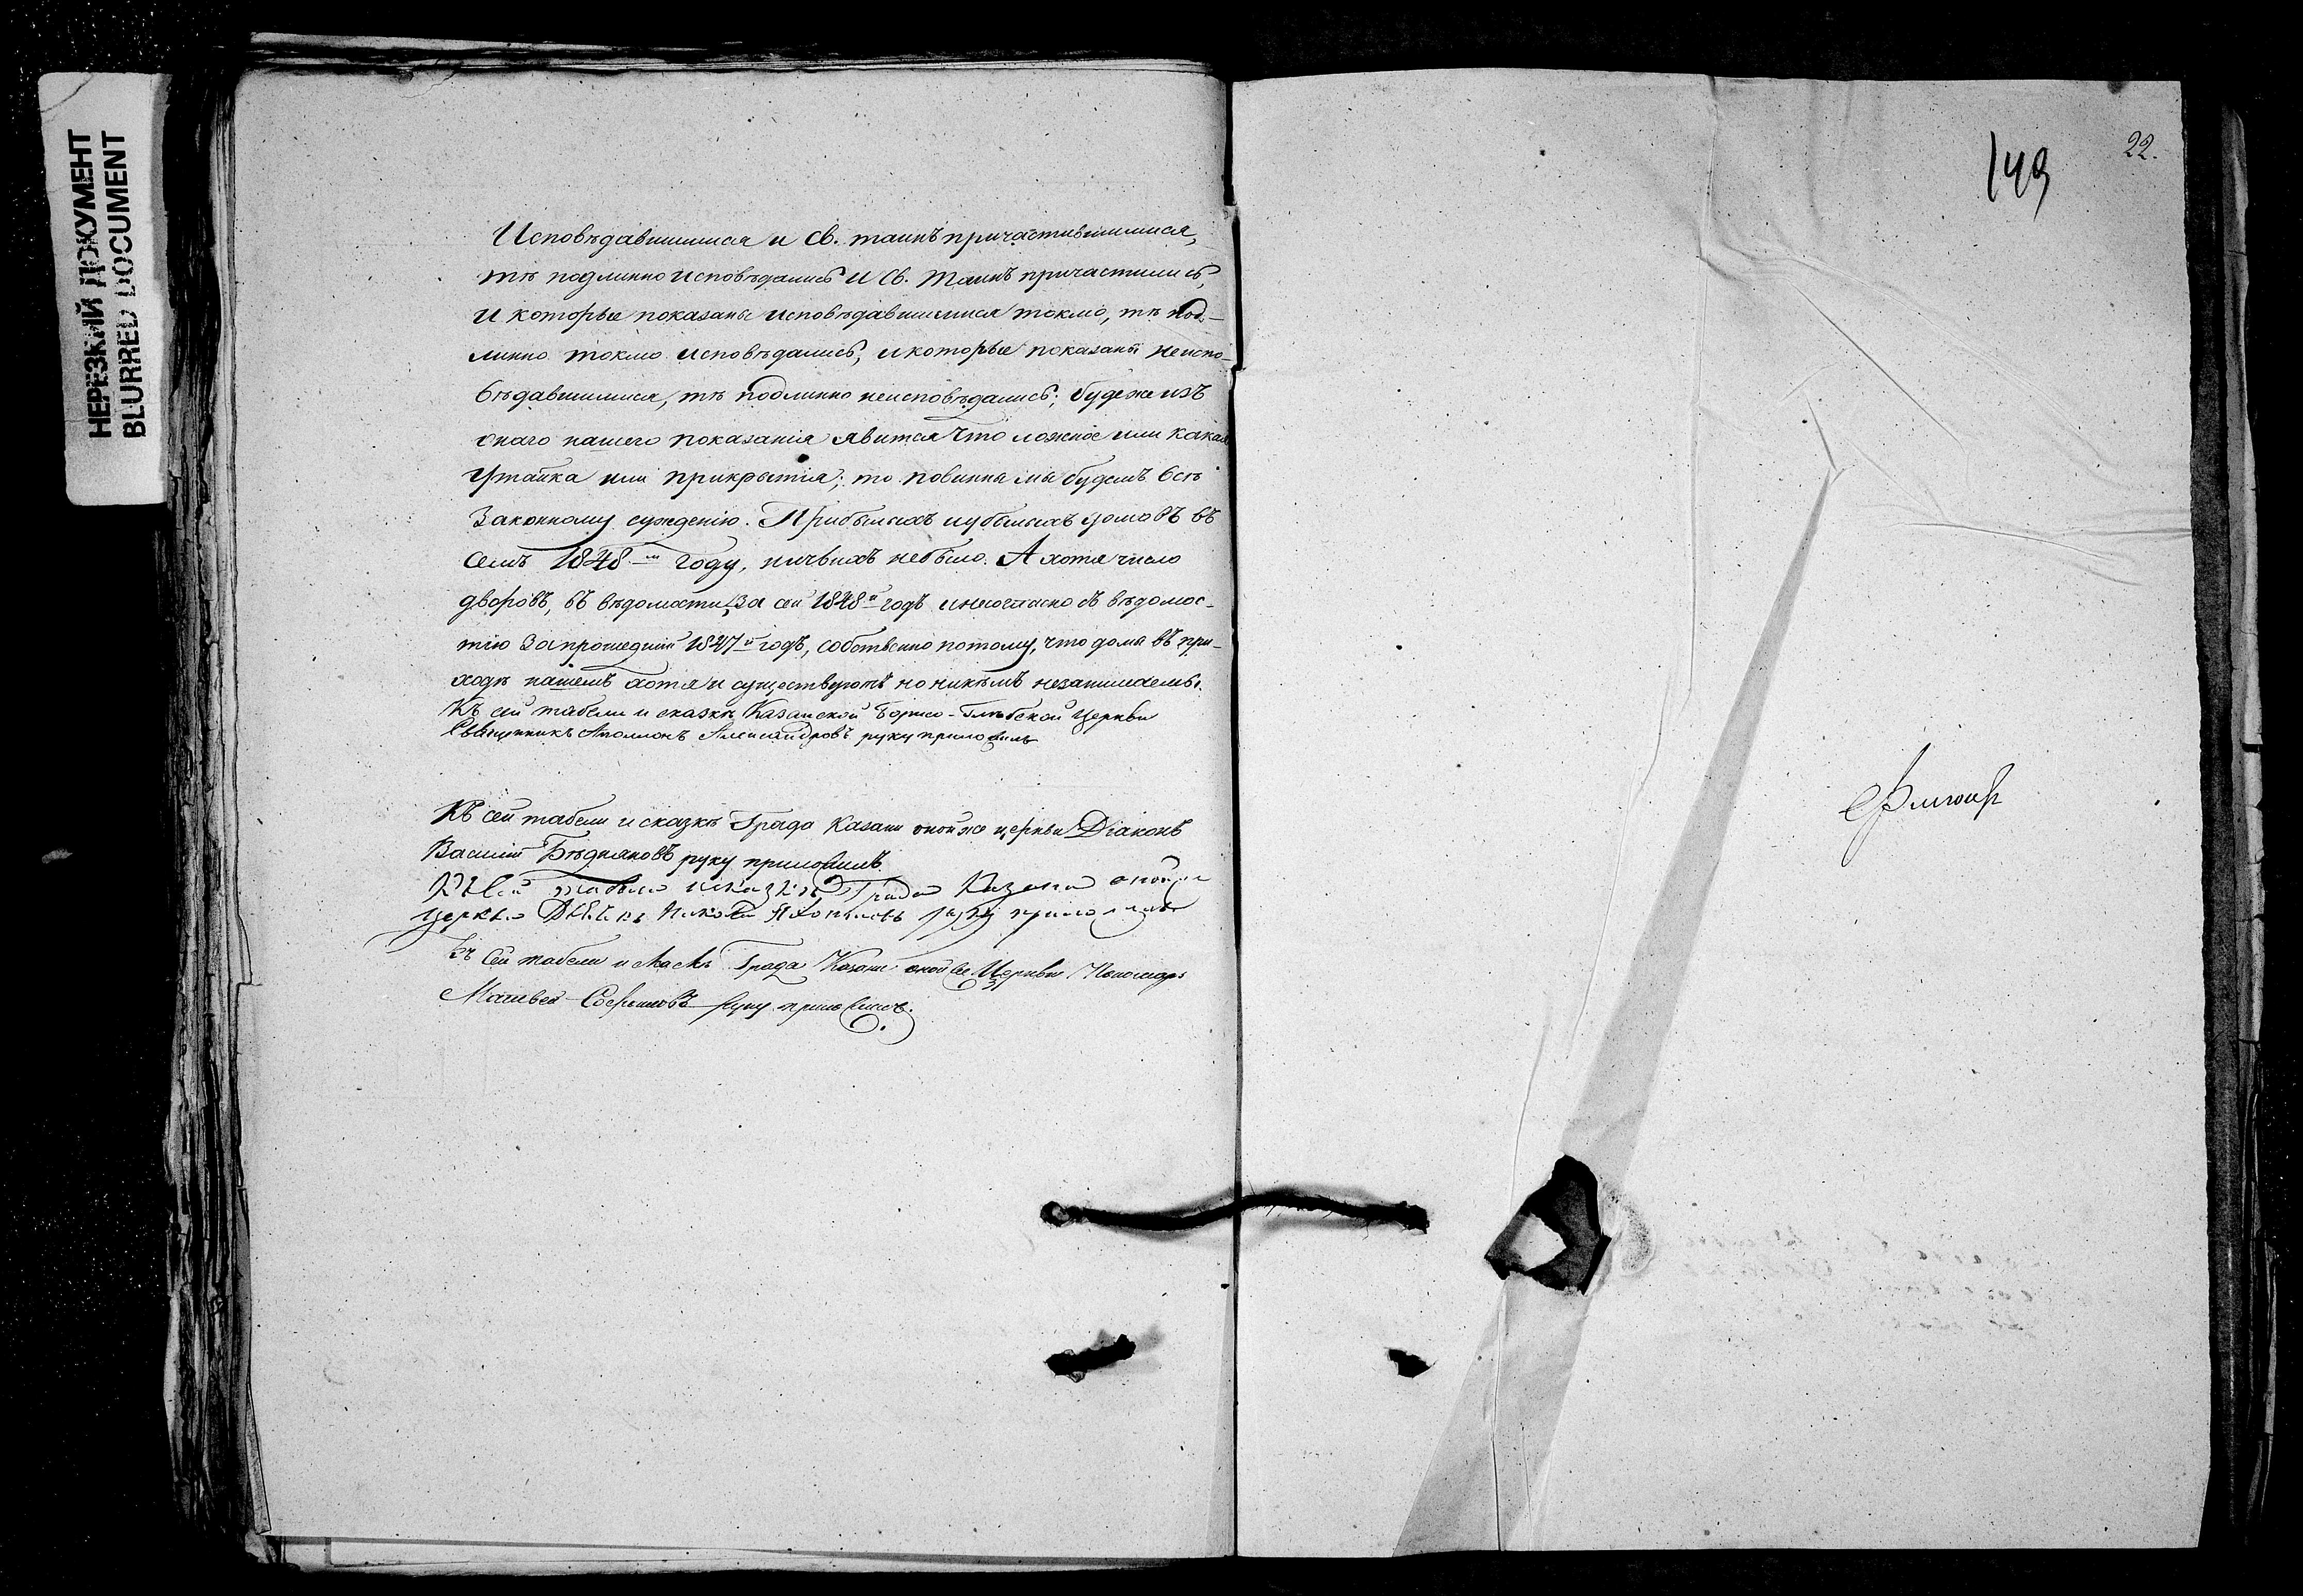 НЕРЕЗКИЙ ДОКУМЕНТ
BLURRED DOCUMENT
Исповѣдавшимися и Св. таинъ причастившимися,
тѣ подлинно исповѣдались и Св. Таинъ причастились,
и которые показаны исповѣдавшимися токмо, тѣ под-
линно токмо исповѣдались; и которые показаны неиспо-
вѣдавшимися, тѣ подлинно неисповѣдались; буде же изъ
онаго нашего показанія явится что ложное или какая
утайка или прикрытія; то повинны мы будемъ всѣ
законному сужденію. Прибылыхъ и убылыхъ домовъ въ
семъ 1848-м году, ничьихъ небыло. А хотя число
дворовъ, въ вѣдомости за сей 1848й годъ и несогласно съ вѣдомос-
тію за прошедшій 1847й годъ, собственно потому, что домы въ при-
ходѣ нашемъ хотя и существуютъ но никѣмъ незанимаемы.
Къ сей табели и сказкѣ Казанской Борисо-Глѣбской Церкви
Священникъ Александровъ руку приложилъ
Къ сей табели и сказкѣ Града Казани оной же церкви Діаконъ
Василій Бѣдняковъ руку приложилъ.
Къ сей табели и сказкѣ Града Казани оной же
церкви руку приложилъ
Къ сей табели и Града Казани оной же Церкви Пономарь
Матвей руку приложилъ.
149
22.